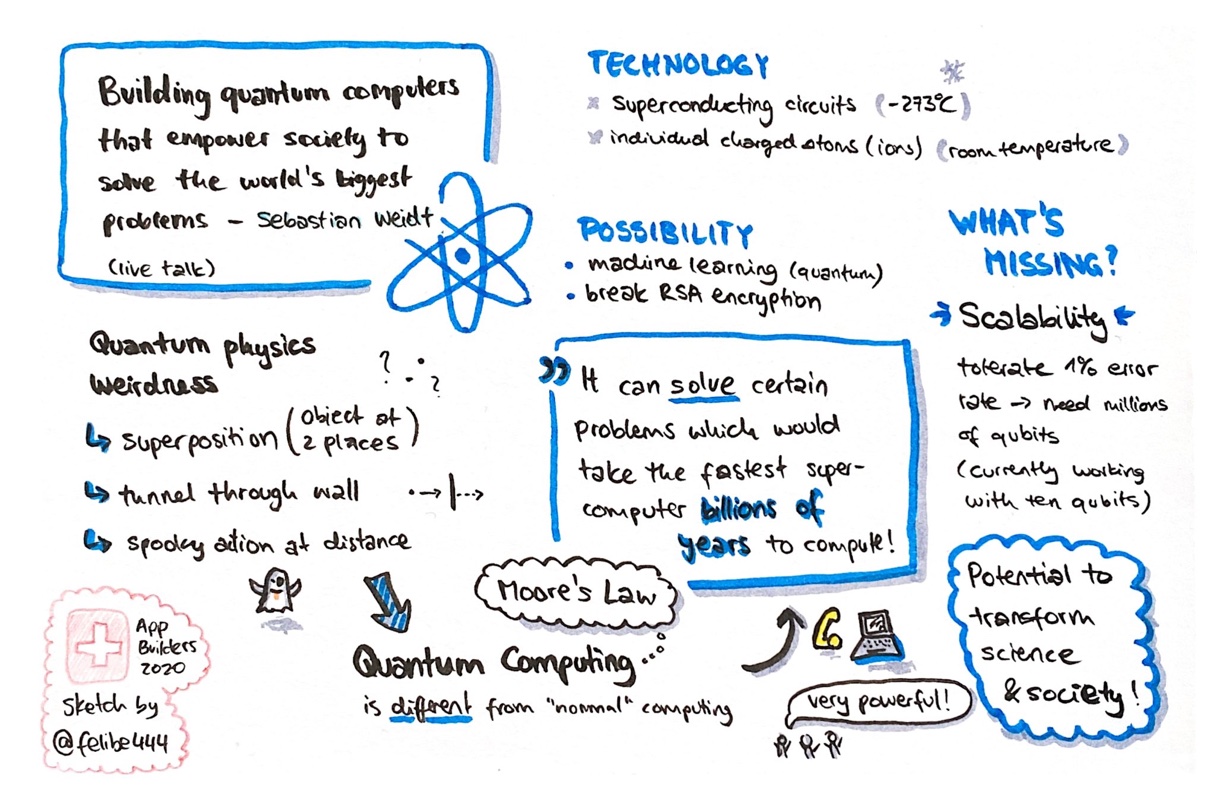 Building quantum computers
that empower society to
solve the world's biggest
problems – Sebastian Weidt
(live talk)
TECHNOLOGY
superconducting circuits (-273°C)
individual charged atoms (ions) (room temperature)
POSSIBILITY
• machine learning (quantum)
• break RSA encryption
WHAT'S
MISSING?
→ Scalability ←
tolerate 1% error
rate → need millions
of qubits
(currently working
with ten qubits)
Quantum physics
weirdness
? ?
↳ superposition (object at
2 places)
↳ tunnel through wall
↳ spooky action at distance
" It can solve certain
problems which would
take the fastest super-
computer billions of
years to compute!
Moore's Law
Quantum Computing...
is different from "normal" computing
very powerful!
Potential to
transform
science
& society!
App
Builders
2020
Sketch by
@felibe444